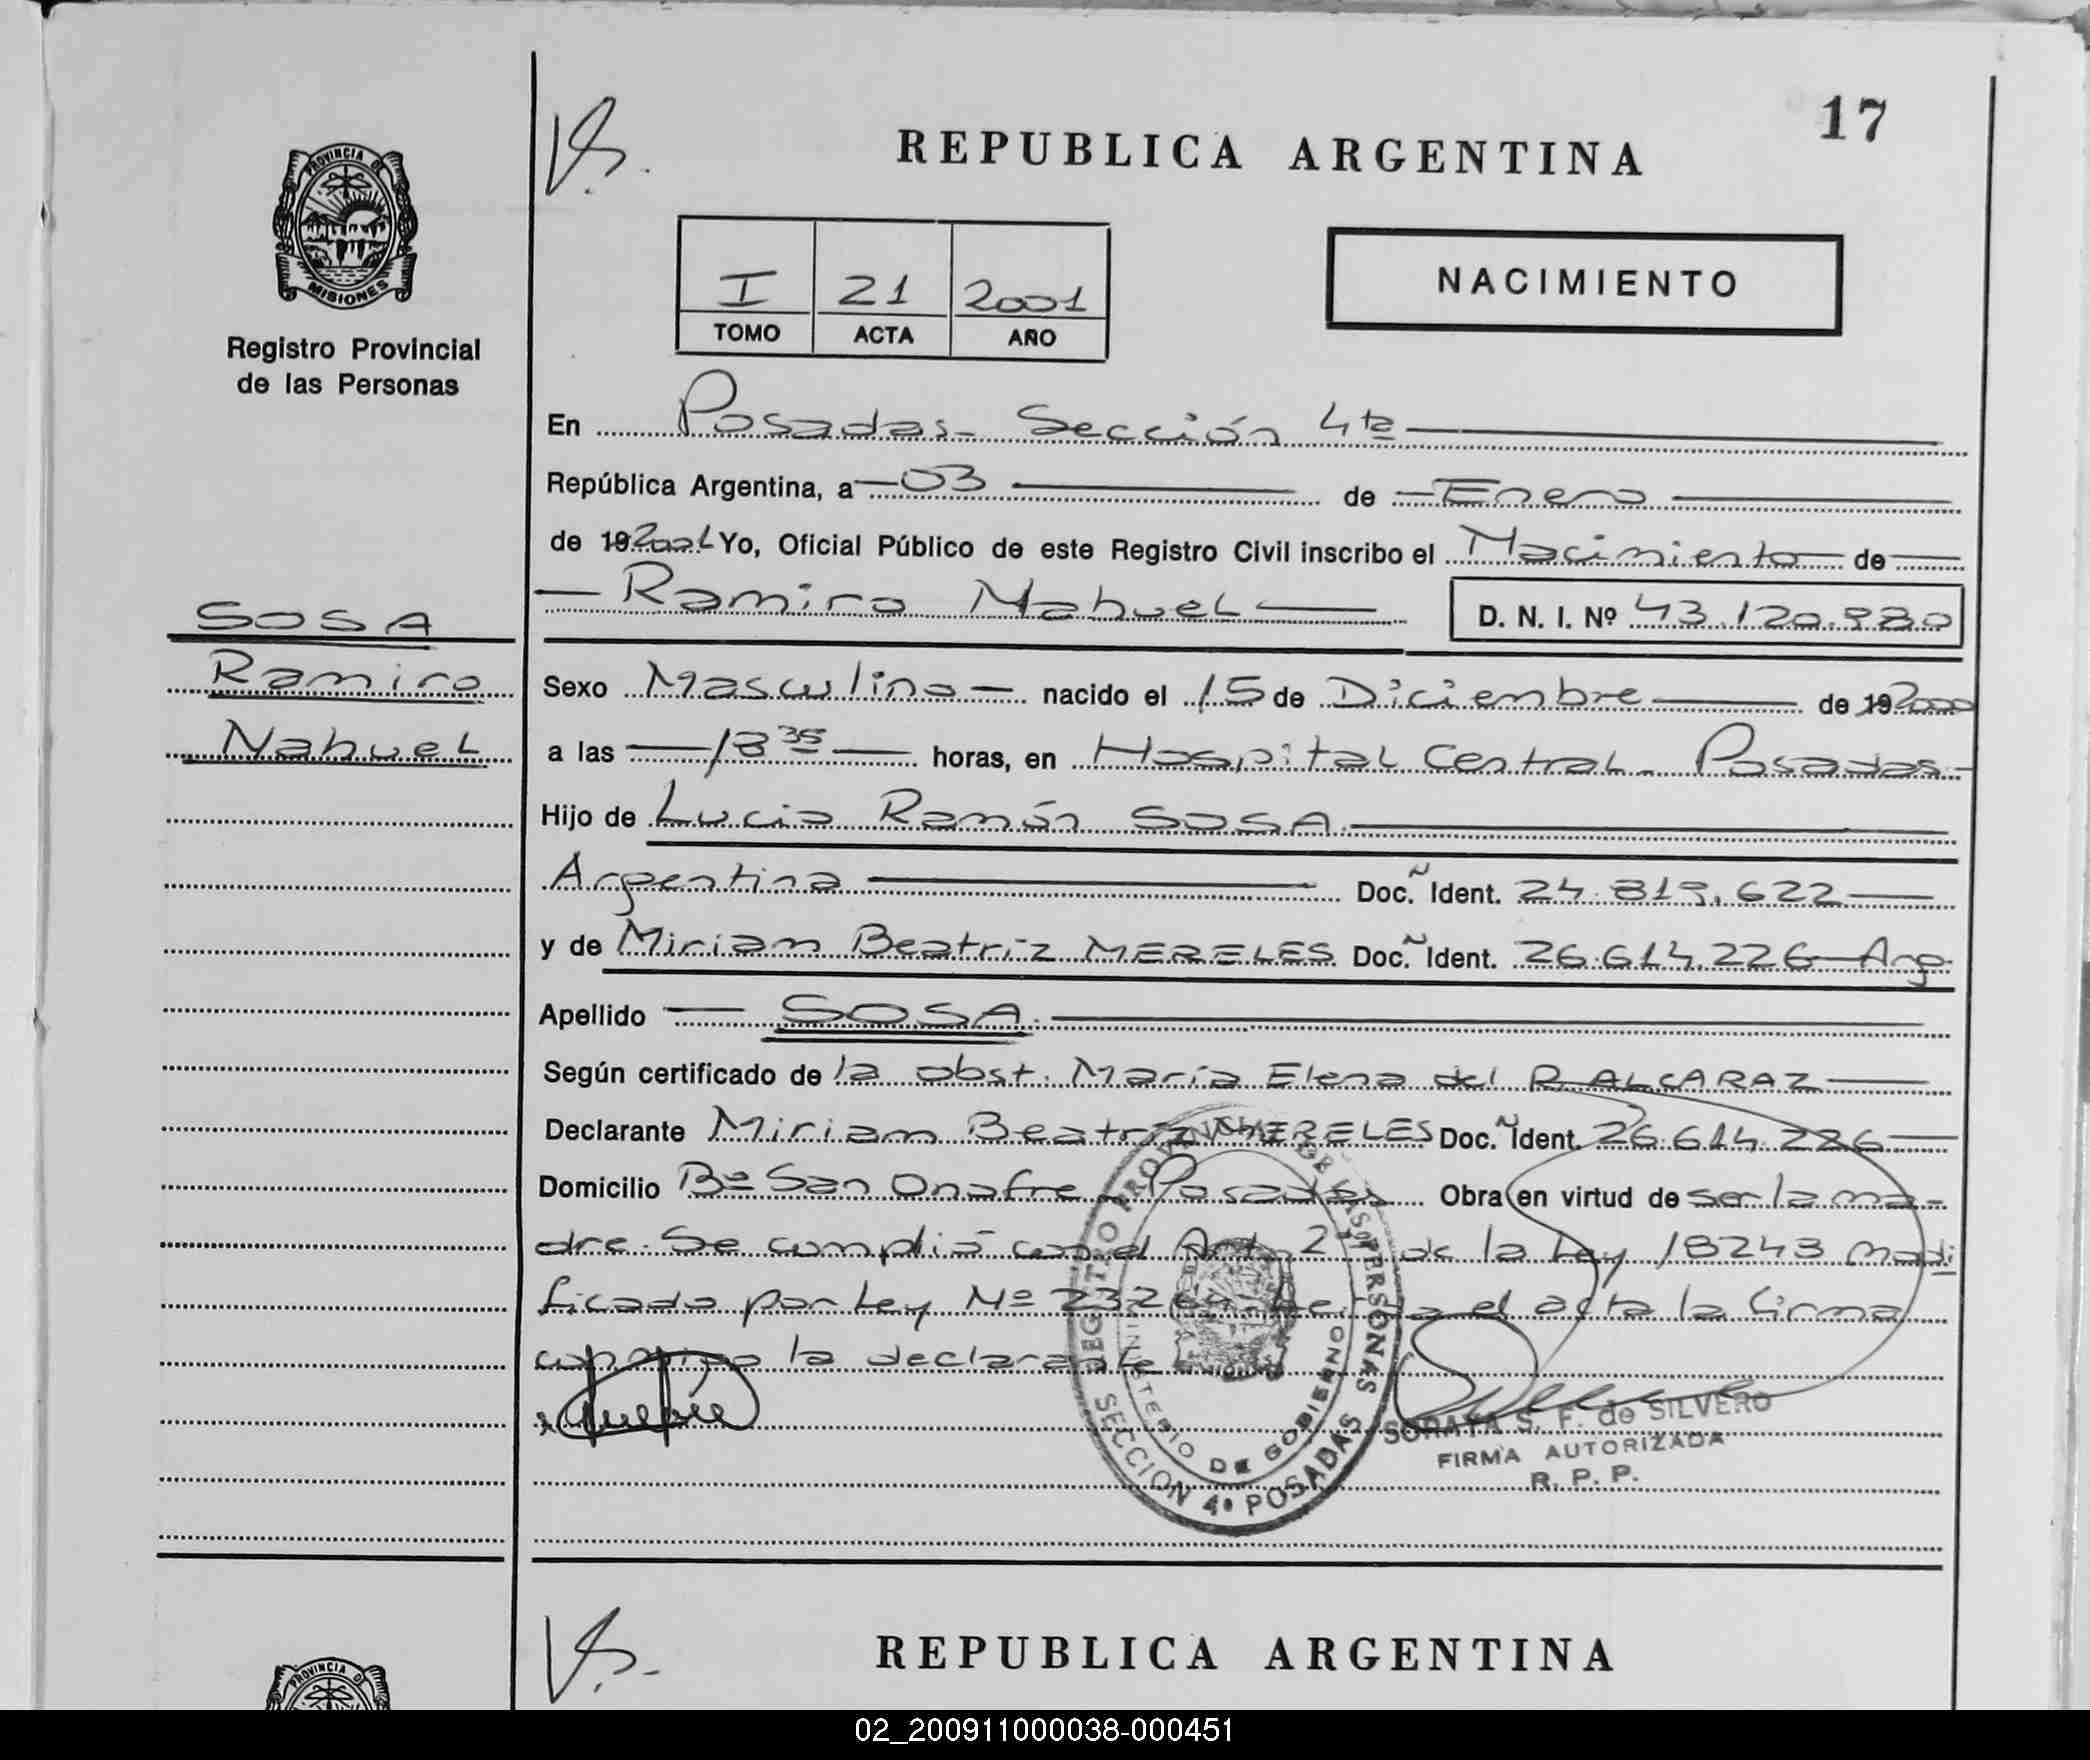 17
REPUBLICA ARGENTINA
PROVINCIA DE
MISIONES
Registro Provincial
de las Personas
I 21 2001
TOMO ACTA AÑO
NACIMIENTO
En Posadas - Sección 4ta
República Argentina, a 03 de Enero
de 19 2001 Yo, Oficial Público de este Registro Civil inscribo el Nacimiento de
Ramiro Nahuel D. N. I. Nº 43.120.980
SOSA
Ramiro
Nahuel
Sexo Masculino nacido el 15 de Diciembre de 19 2000
a las 18 35 horas, en Hospital Central - Posadas -
Hijo de Lucio Ramón SOSA
Argentina Doc. Ident. 24.819.622
y de Miriam Beatriz MERELES Doc. Ident. 26.614.226 Arg.
Apellido SOSA
Según certificado de la obst. María Elena del R. ALCARAZ
Declarante Miriam Beatriz MERELES Doc. Ident. 26.614.226
Domicilio Bº San Onofre - Posadas Obra en virtud de ser la ma-
dre. Se cumplió con el Art. 2 de la Ley 18243 modi
ficado por Ley Nº el acta la firma
conmigo la declarante
REGISTRO PROVINCIAL DE LAS PERSONAS
MINISTERIO DE GOBIERNO
SECCION 4º POSADAS
SORAYA S. F. de SILVERO
FIRMA AUTORIZADA
R. P. P.
REPUBLICA ARGENTINA
PROVINCIA DE
02_200911000038-000451